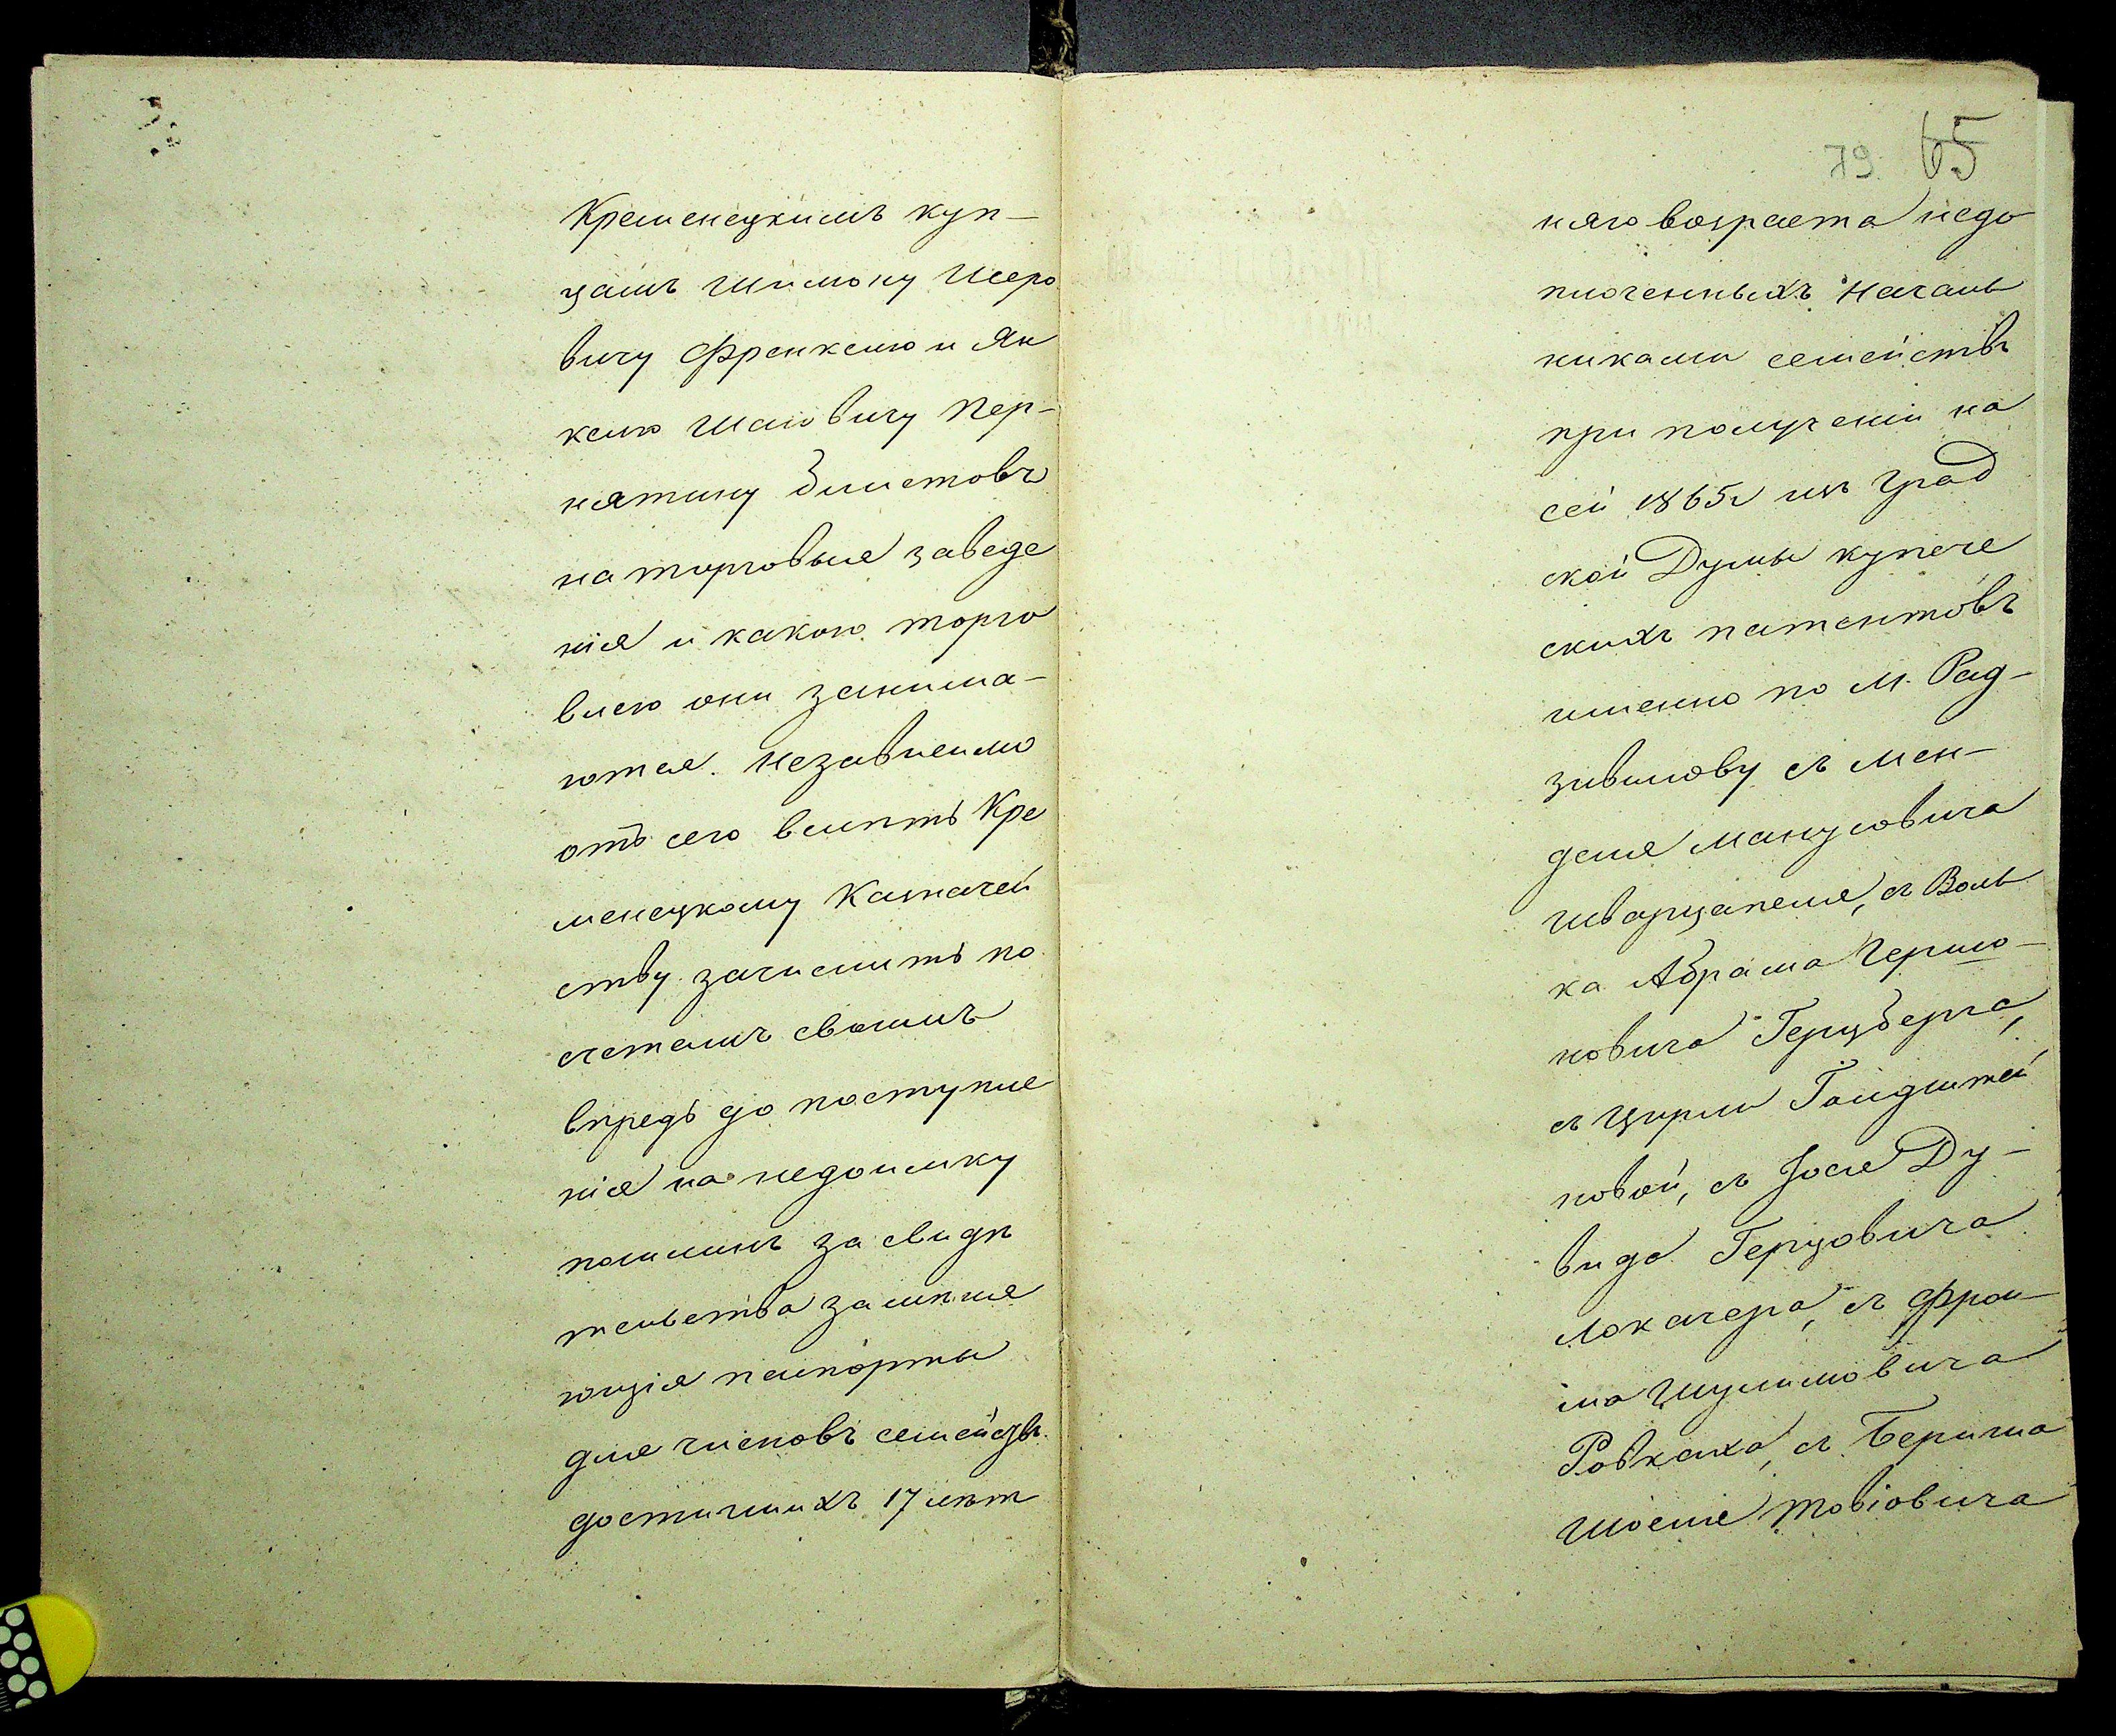 Кременецкимъ куп-
цамъ Шимону Шеро
вичу Френкелю и Ян
келю Шаевичу Пер-
нятину билетовъ
на торговыя заведе
нія и какою торго
влею они занима-
ются. Независимо
отъ сего велитъ Кре
менецкому Казначей
ству зачислить по
счетамъ своимъ
впредь до поступле
нія на недоимку
пошлинъ за свидѣ
тельства замѣня
ющія паспорты
для членовъ семействъ
достигшихъ 17 лѣт
79. 65
няго возраста недо
плоченныхъ Началь
никами семействъ
при полученіи на
сей 1865 г изъ Град
ской Думы купече
скихъ патентовъ
именно по М. Рад-
зивилову съ Мен-
деля Манусовича
Шварцапеля, съ Воль
ка Абрама Гершо-
новича Герцберга,
съ Цирли Гольдштей
новой, съ Іосія Ду-
вида Герцовича
Локачера, съ Фрои-
ма Шулимовича
Равкаха, съ Бериша
Шоеля Товіовича